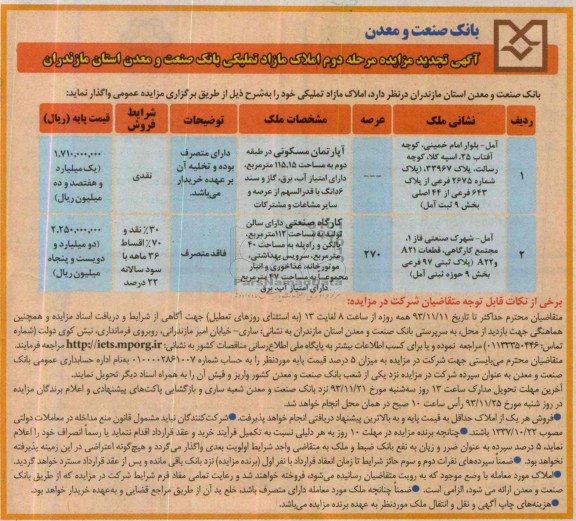 بانک صنعت و معدن
آگهی تجدید مزایده مرحله دوم املاک مازاد تملیکی بانک صنعت و معدن استان مازندران
بانک صنعت و معدن استان مازندران درنظر دارد، املاک مازاد تملیکی خود را به‌شرح ذیل از طریق برگزاری مزایده عمومی واگذار نماید:
ردیف نشانی ملک عرصه مشخصات ملک توضیحات شرایط فروش قیمت پایه (ریال)
۱
آمل- بلوار امام خمینی، کوچه
آفتاب ۲۵، اسپه کلا، کوچه
رسالت، پلاک ۳۳۹۶۷، (پلاک
شماره ۲۶۷۵ فرعی از پلاک
۶۴۳ فرعی از ۴۴ اصلی
بخش ۹ ثبت آمل)
---
آپارتمان مسکونی در طبقه
دوم به مساحت ۱۱۵,۱۵ مترمربع،
دارای امتیاز آب، برق، گاز و سند
۶دانگ با قدرالسهم از عرصه و
سایر مشاعات و مشترکات
دارای متصرف
بوده و تخلیه آن
بر عهده خریدار
می‌باشد.
نقدی
۱,۷۱۰,۰۰۰,۰۰۰
(یک میلیارد
و هفتصد و ده
میلیون ریال)
۲
آمل- شهرک صنعتی فاز ۱،
مجتمع کارگاهی، قطعات A۲۱
و A۲۲ (پلاک ثبتی ۹۷ فرعی
بخش ۹ حوزه ثبتی آمل)
۲۷۰
کارگاه صنعتی دارای سالن
تولید به مساحت ۱۱۲مترمربع،
بالکن و راه‌پله به مساحت ۴۰
مترمربع، سرویس بهداشتی،
موتورخانه، غذاخوری و انبار
مجموعا به مساحت ۴۷ مترمربع
دارای امتیاز آب، برق
فاقد متصرف
۳۰٪ نقد و
۷۰٪ اقساط
۳۶ ماهه با
سود سالانه
۲۲ درصد
۲,۲۵۰,۰۰۰,۰۰۰
(دو میلیارد و
دویست و پنجاه
میلیون ریال)
برخی از نکات قابل توجه متقاضیان شرکت در مزایده:
متقاضیان محترم حداکثر تا تاریخ ۹۳/۱۱/۱۱ همه روزه از ساعت ۸ لغایت ۱۳ (به استثنای روزهای تعطیل) جهت آگاهی از شرایط و دریافت اسناد مزایده و همچنین
هماهنگی جهت بازدید از محل، به سرپرستی بانک صنعت و معدن استان مازندران به نشانی: ساری- خیابان امیر مازندرانی، روبروی فرمانداری، نبش کوی دولت (شماره
تماس: ۰۱۱۳۳۳۵۰۴۴۶) مراجعه نموده و یا برای کسب اطلاعات بیشتر به پایگاه ملی اطلاع‌رسانی مناقصات کشور به نشانی: http://iets.mporg.ir مراجعه فرمایند.
متقاضیان محترم می‌بایستی جهت شرکت در مزایده به میزان ۵ درصد قیمت پایه موردنظر را به حساب شماره ۰۱۰۰۰۰۲۸۶۱۰۰۷ به‌نام اداره حسابداری عمومی بانک
صنعت و معدن به عنوان سپرده شرکت در مزایده نزد یکی از شعب بانک صنعت و معدن کشور واریز و فیش آن را به همراه اسناد دیگر تحویل نمایند.
آخرین مهلت تحویل مدارک ساعت ۱۳ روز سه‌شنبه مورخ ۹۳/۱۱/۲۱ نزد بانک صنعت و معدن شعبه ساری و بازگشایی پاکت‌های پیشنهادی و اعلام برندگان مزایده
در روز شنبه مورخ ۹۳/۱۱/۲۵ رأس ساعت ۱۰ صبح در همان محل انجام خواهد شد.
●فروش هر یک از املاک حداقل به قیمت پایه و به بالاترین پیشنهاد دریافتی انجام خواهد پذیرفت. ●شرکت‌کنندگان نباید مشمول قانون منع مداخله در معاملات دولتی
مصوب ۱۳۳۷/۱۰/۲۲ باشند. ●چنانچه برنده مزایده در مهلت ۱۰ روز به هر دلیلی نسبت به تکمیل فرآیند خرید و عقد قرارداد اقدام ننماید یا رسماً انصراف خود را اعلام
نماید، ۵ درصد سپرده به عنوان ضرر و زیان به نفع بانک ضبط و ملک به متقاضی واجد شرایط اولویت بعدی واگذار می‌گردد و هیچ‌گونه اعتراضی در این زمینه پذیرفته
نخواهد بود. ●ضمناً سپرده‌های نفرات دوم و سوم حائز شرایط تا زمان انعقاد قرارداد با نفر اول (برنده مزایده) نزد بانک باقی مانده و پس از عقد قرارداد مسترد خواهد گردید.
●املاک مورد معامله با وضع موجود که به رویت متقاضیان رسانیده می‌شود، فروخته خواهند شد و رعایت تمامی مفاد فرم شرایط شرکت در مزایده که از طریق بانک
صنعت و معدن ارائه می شود، الزامی است. ●ضمناً چنانچه ملک مورد معامله دارای متصرف باشد، خلع ید آن از طریق مراجع قضایی و به‌عهده خریدار خواهد بود.
●هزینه‌های چاپ آگهی و نقل و انتقال ملک موردنظر به عهده برنده مزایده می‌باشد.